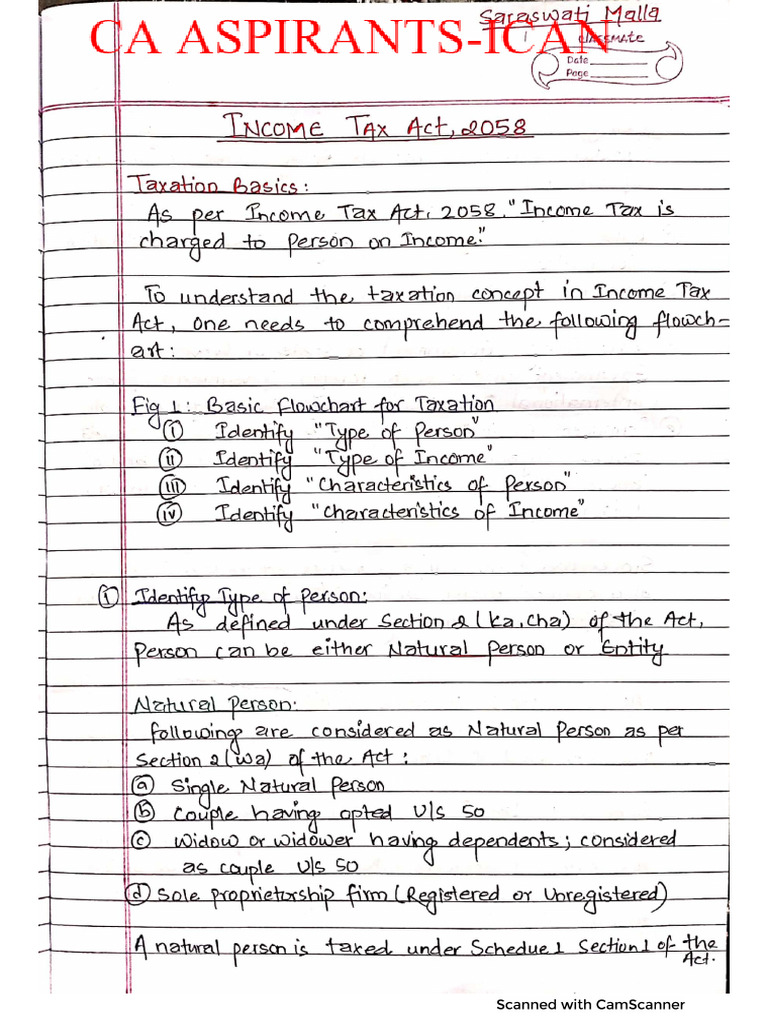 Saraswati Malla
CA ASPIRANTS-ICAN
CLASSMATE
Date
Page
INCOME TAX Act, 2058
Taxation Basics:
As per Income Tax Act, 2058. "Income Tax is
charged to person on Income."
To understand the taxation concept in Income Tax
Act, one needs to comprehend the following flowch-
art:
Fig 1: Basic flowchart for Taxation
(i) Identify "Type of Person"
(ii) Identify "Type of Income"
(iii) Identify "Characteristics of Person"
(iv) Identify "Characteristics of Income"
(i) Identify Type of person:
As defined under Section 2 (ka,cha) of the Act,
Person can be either Natural person or Entity
Natural person:
Following are considered as Natural Person as per
Section 2 (wa) of the Act :
(a) Single Natural Person
(b) Couple having opted U/S 50
(c) Widow or widower having dependents; considered
as couple U/S 50
(d) Sole proprietorship firm (Registered or Unregistered)
A natural person is taxed under Schedue 1 Section 1 of the
Act.
Scanned with CamScanner